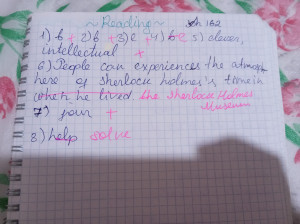 ~Reading~ 162
1) b + 2) b + 3) c 4) b 5) clever,
intellectual +
6) People can experiences the atmosp
here of Sherlock Holmes's time in
when he lived. the Sherlock Holmes
Museum
7) four +
8) help solve